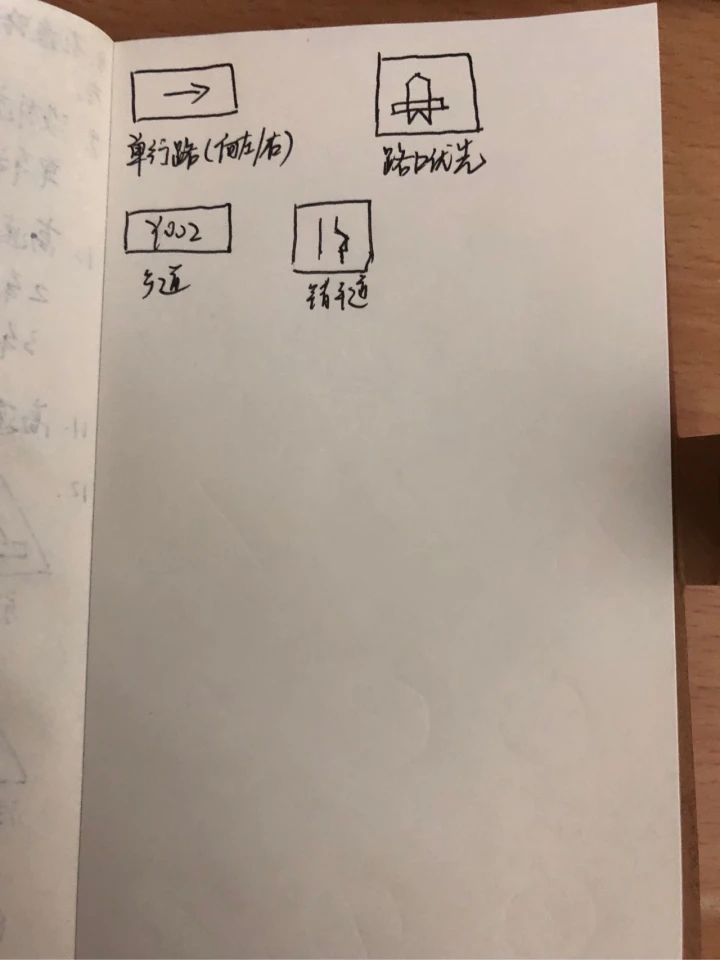 单行路(向左/右)
路口优先
Y002
乡道
错车道